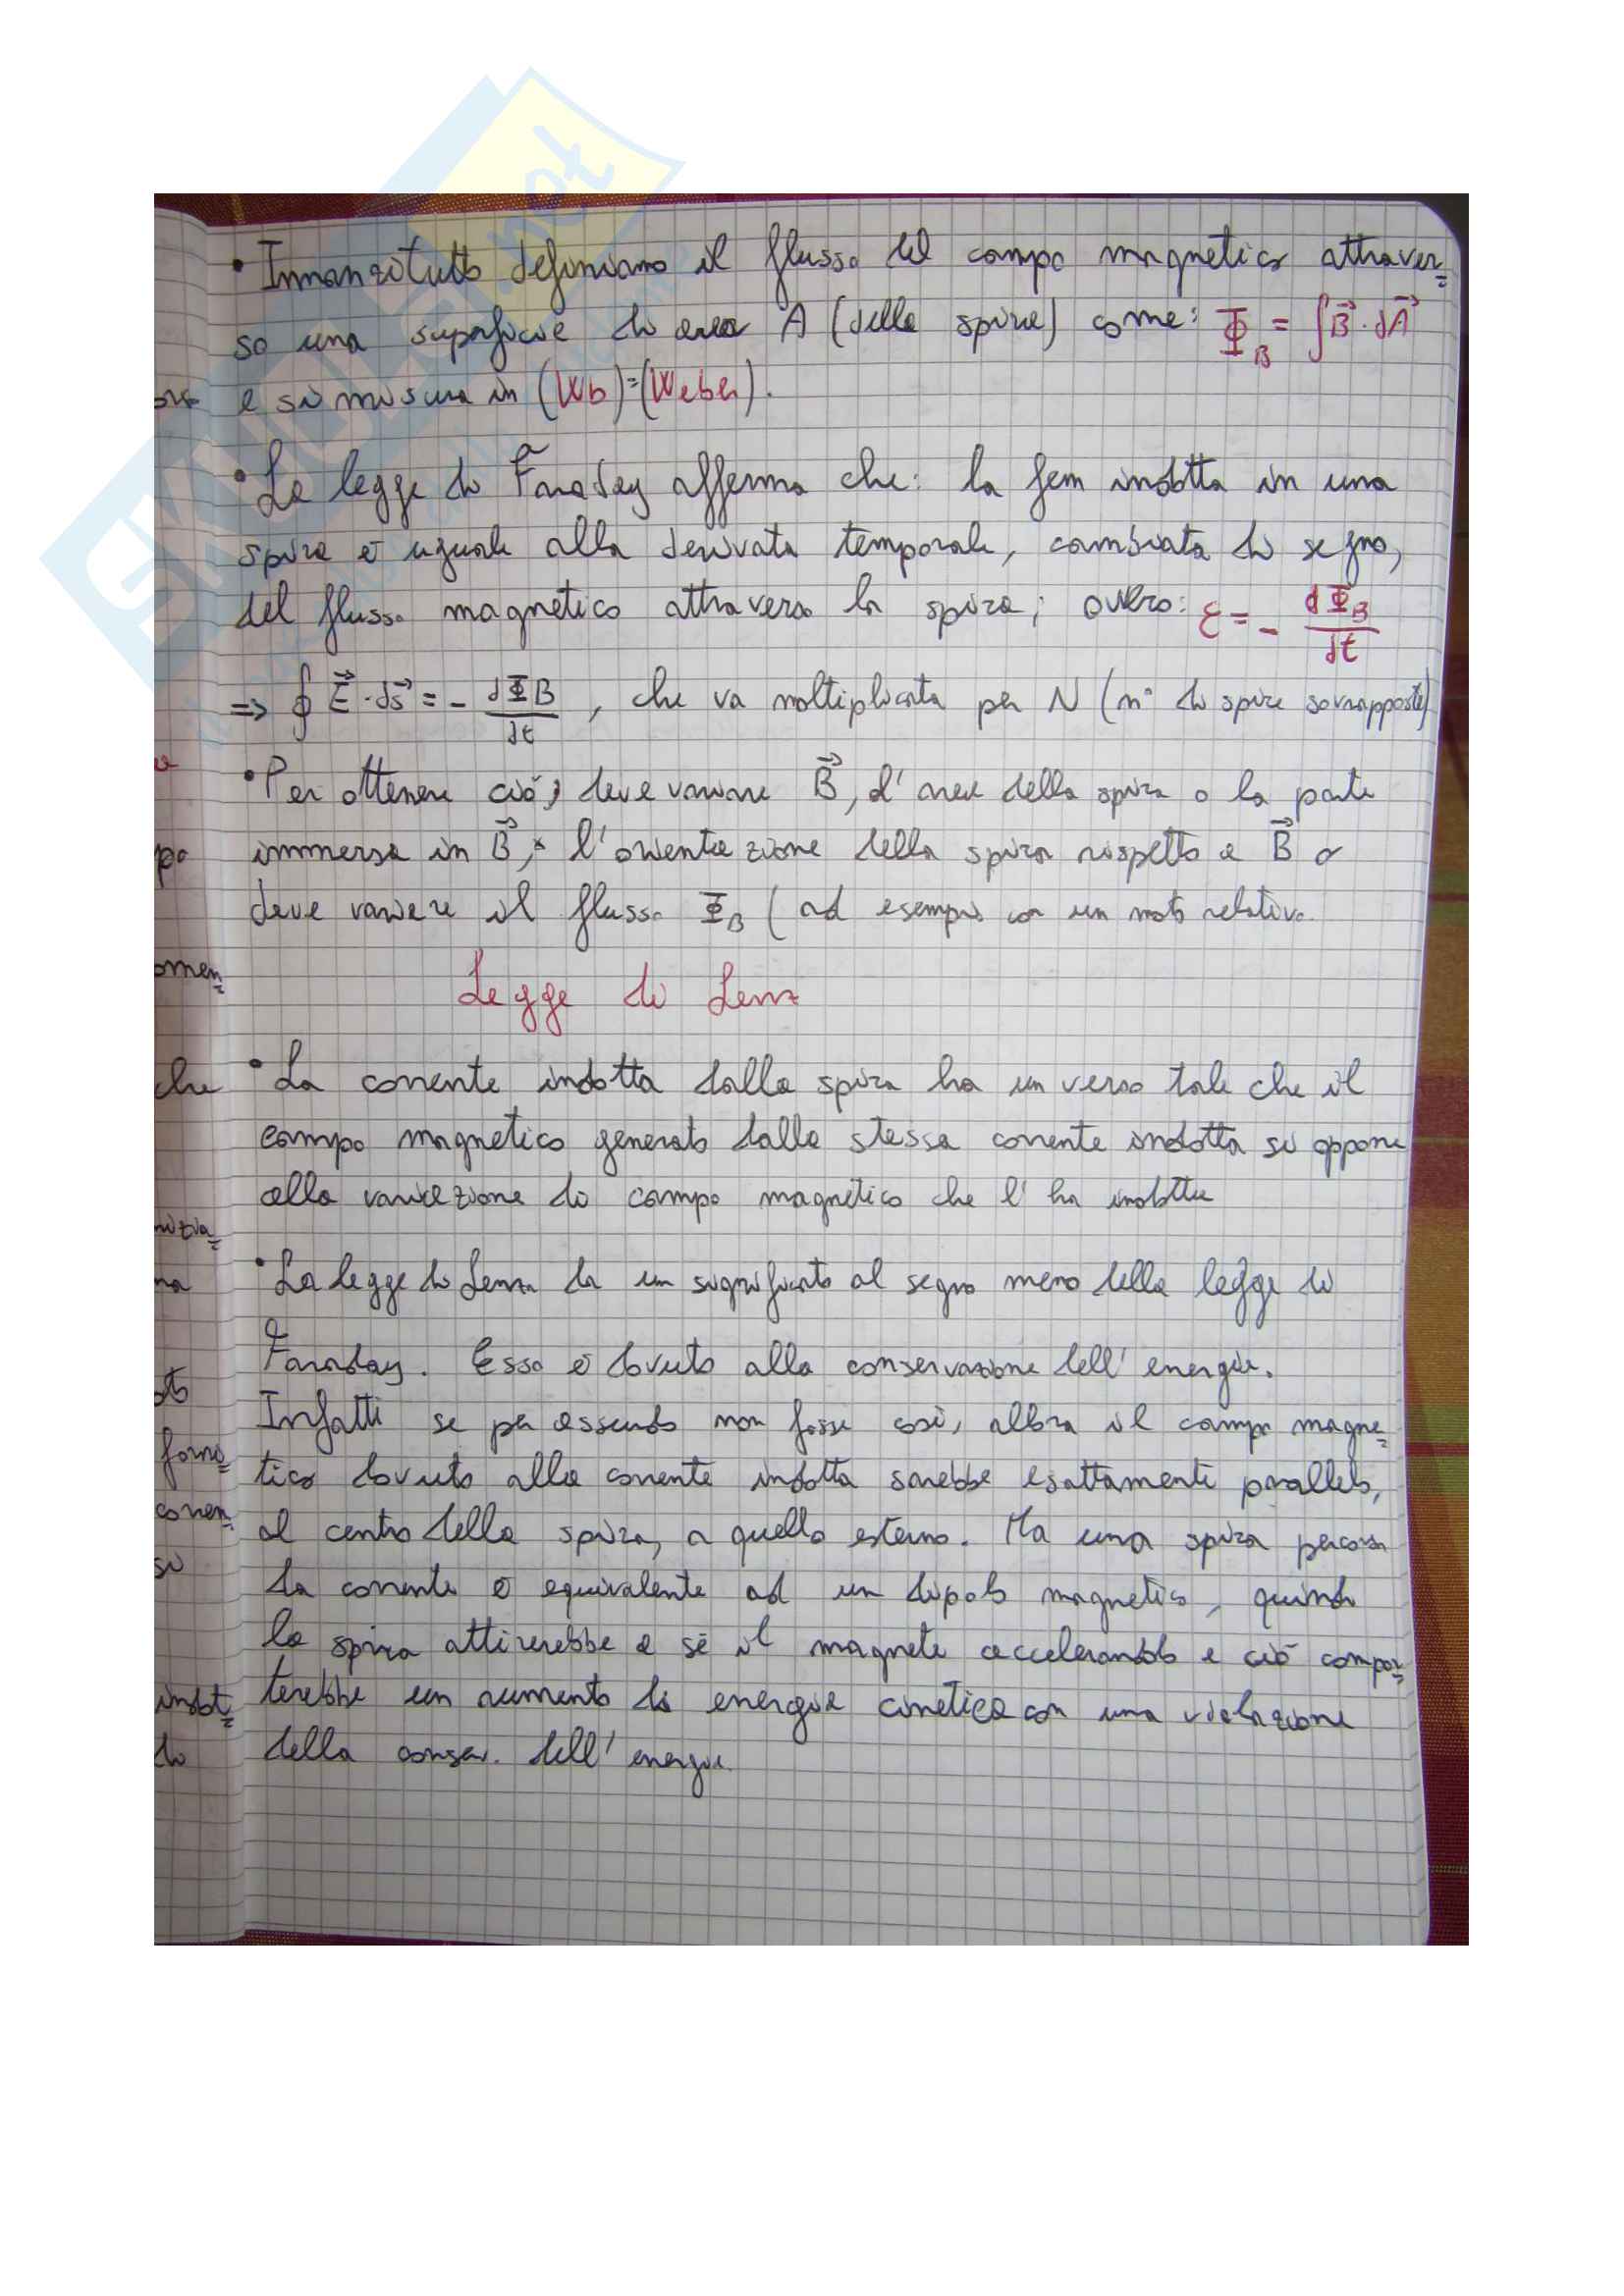 • Innanzitutto definiamo il flusso del campo magnetico attraver=
so una superficie di area A (della spira) come: Φ_B = ∫B⃗·dA⃗
e si misura in (Wb)=(Weber).
• La legge di Faraday afferma che: la fem indotta in una
spira è uguale alla derivata temporale, cambiata di segno,
del flusso magnetico attraverso la spira; ovvero: ε = - dΦ_B/dt
=> ∮ E⃗·ds⃗ = - dΦB/dt , che va moltiplicata per N (n° di spire sovrapposte)
• Per ottenere ciò, deve variare B⃗, l'area della spira o la parte
immersa in B⃗, l'orientazione della spira rispetto a B⃗ o
deve variare il flusso Φ_B (ad esempio con un moto relativo.
Legge di Lenz
• La corrente indotta dalla spira ha un verso tale che il
campo magnetico generato dalla stessa corrente indotta si oppone
alla variazione di campo magnetico che l'ha indotta
• La legge di Lenz da un significato al segno meno della legge di
Faraday. Esso è dovuto alla conservazione dell'energia.
Infatti se per assurdo non fosse così, allora il campo magne=
tico dovuto alla corrente indotta sarebbe esattamente parallelo,
al centro della spira, a quello esterno. Ma una spira percorsa
da corrente è equivalente ad un dipolo magnetico, quindi
la spira attirerebbe a sé il magnete accelerando e ciò compor=
terebbe un aumento di energia cinetica con una violazione
della conser. dell'energia.
po
omen=
che
na
forni=
corren=
si
indot=
di
SKUOLA.net